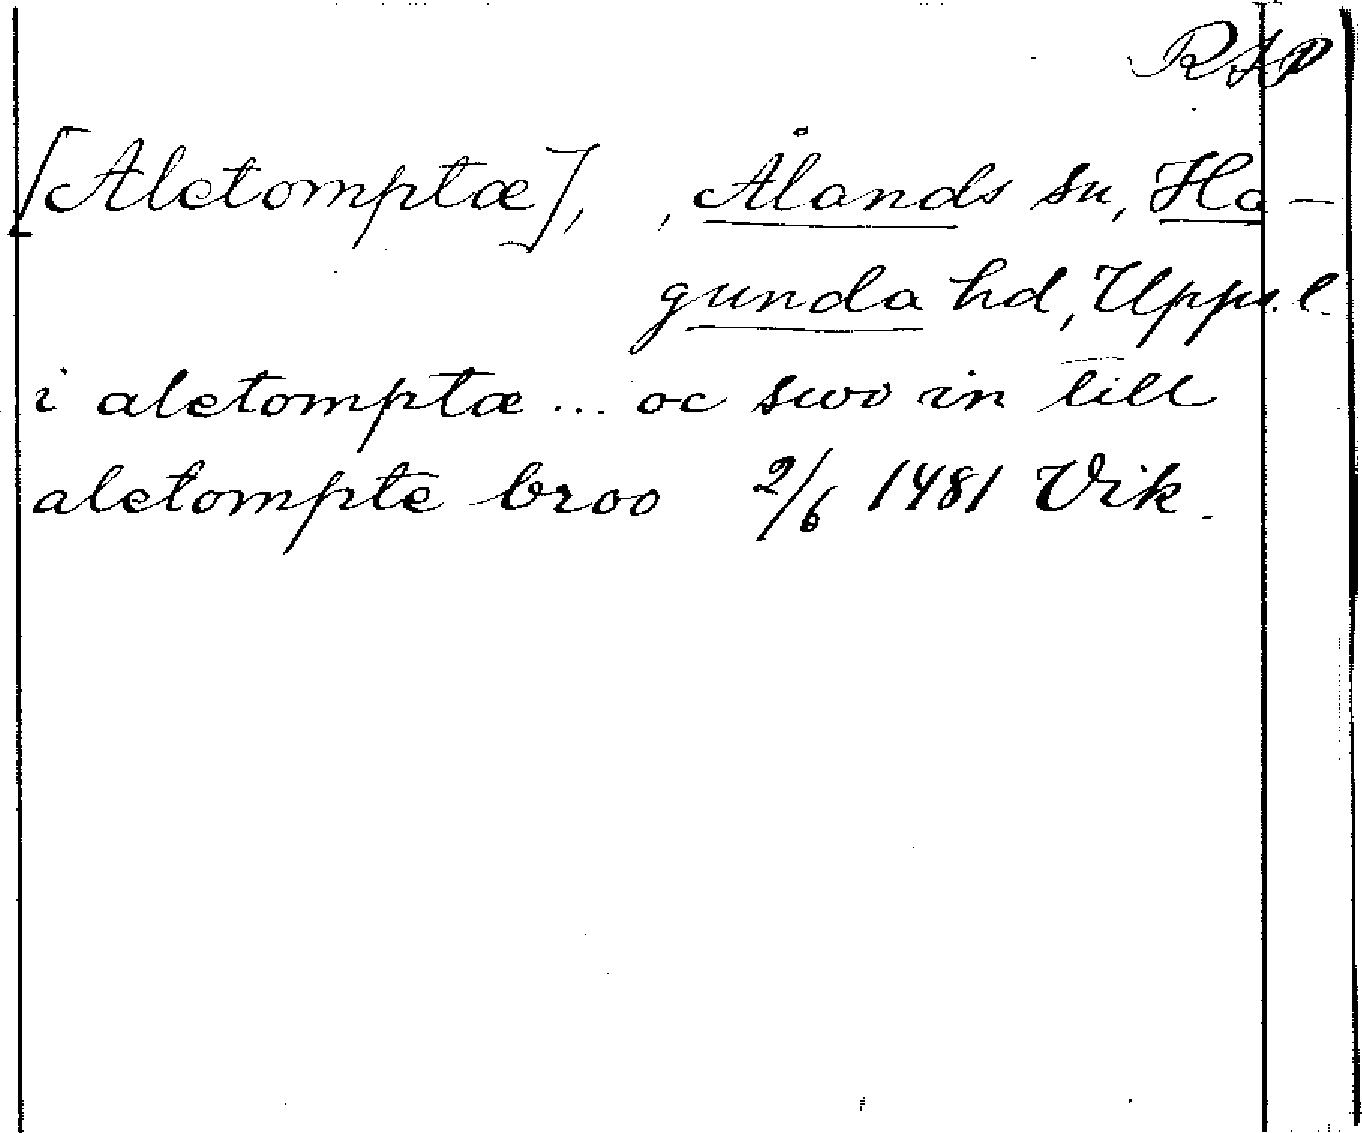 RAP
[Aletomptæ], , Ålands sn, Ha-
gunda hd, Upps. l.
i aletomptæ ... oc swo in till
aletompte broo 2/6 1481 Vik.